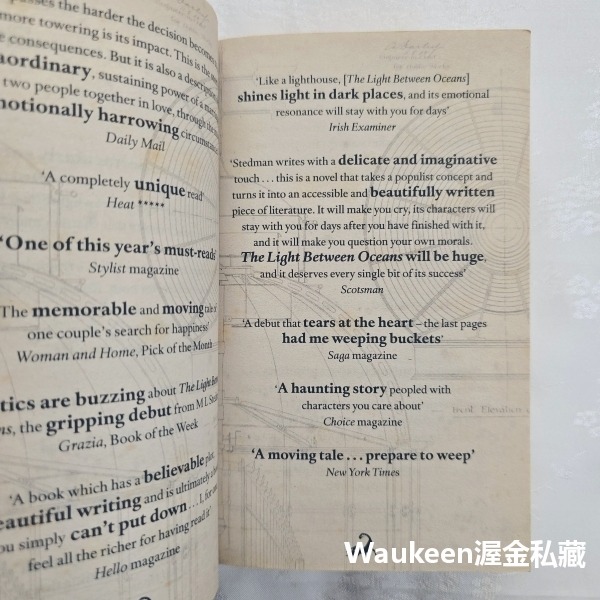 passes the harder the decision becomes
more towering is its impact. This is the
consequences. But it is also a
sustaining power of a
two people together in love, through the
harrowing
Daily Mail
'A completely unique read'
Heat *****
'One of this year's must-reads'
Stylist magazine
The memorable and moving
one couple's search for happiness'
Woman and Home, Pick of the Month
are buzzing about The Light
the gripping debut from M L
Grazia, Book of the Week
'A book which has a believable
writing and is ultimately
simply can't put down . . . I,
feel all the richer for having read it'
Hello magazine
'Like a lighthouse, [The Light Between Oceans]
shines light in dark places, and its emotional
resonance will stay with you for days'
Irish Examiner
'Stedman writes with a delicate and imaginative
touch . . . this is a novel that takes a populist concept and
turns it into an accessible and beautifully written
piece of literature. It will make you cry, its characters will
stay with you for days after you have finished with it,
and it will make you question your own morals.
The Light Between Oceans will be huge,
and it deserves every single bit of its success'
Scotsman
'A debut that tears at the heart – the last pages
had me weeping buckets'
Saga magazine
'A haunting story peopled with
characters you care about'
Choice magazine
Front Elevation
'A moving tale . . . prepare to weep'
New York Times
Waukeen渥金私藏